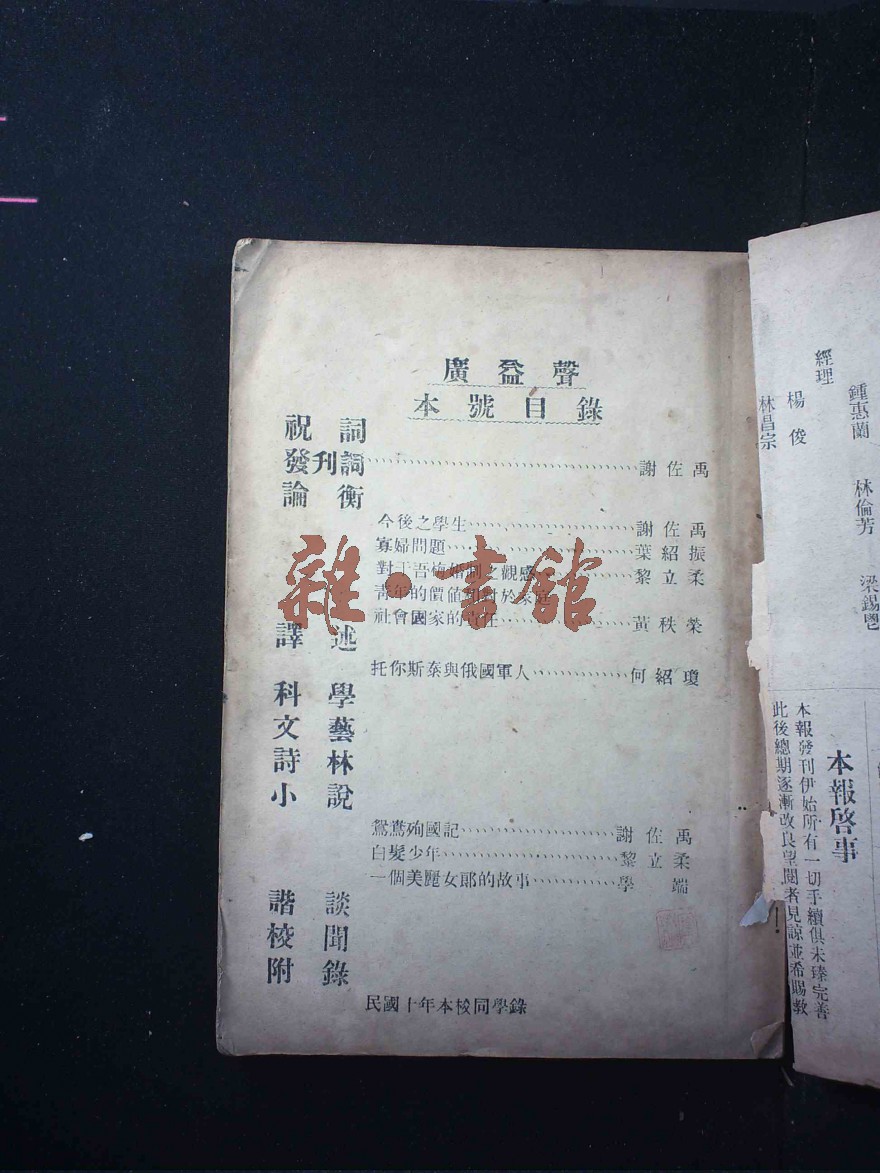 廣益聲
本號目錄
祝詞
發刊詞……謝佐禹
論衡
今後之學生……謝佐禹
寡婦問題……葉紹振
對于吾梅婚制之觀感……黎立柔
青年的價值和對於家庭
社會國家的責任……黃秩榮
譯述
托你斯泰與俄國軍人……何紹瓊
科學
文藝
詩林
小說
鴛鴦殉國記……謝佐禹
白髮少年……黎立柔
一個美麗女郎的故事……學端
諧談
校聞
附錄
民國十年本校同學錄
雜·書館
經理
鍾惠蘭 林倫芳 梁錫鬯
楊俊
林昌宗
本報啓事
本報發刊伊始所有一切手續俱未臻完善
此後總期逐漸改良望閱者見諒並希賜教